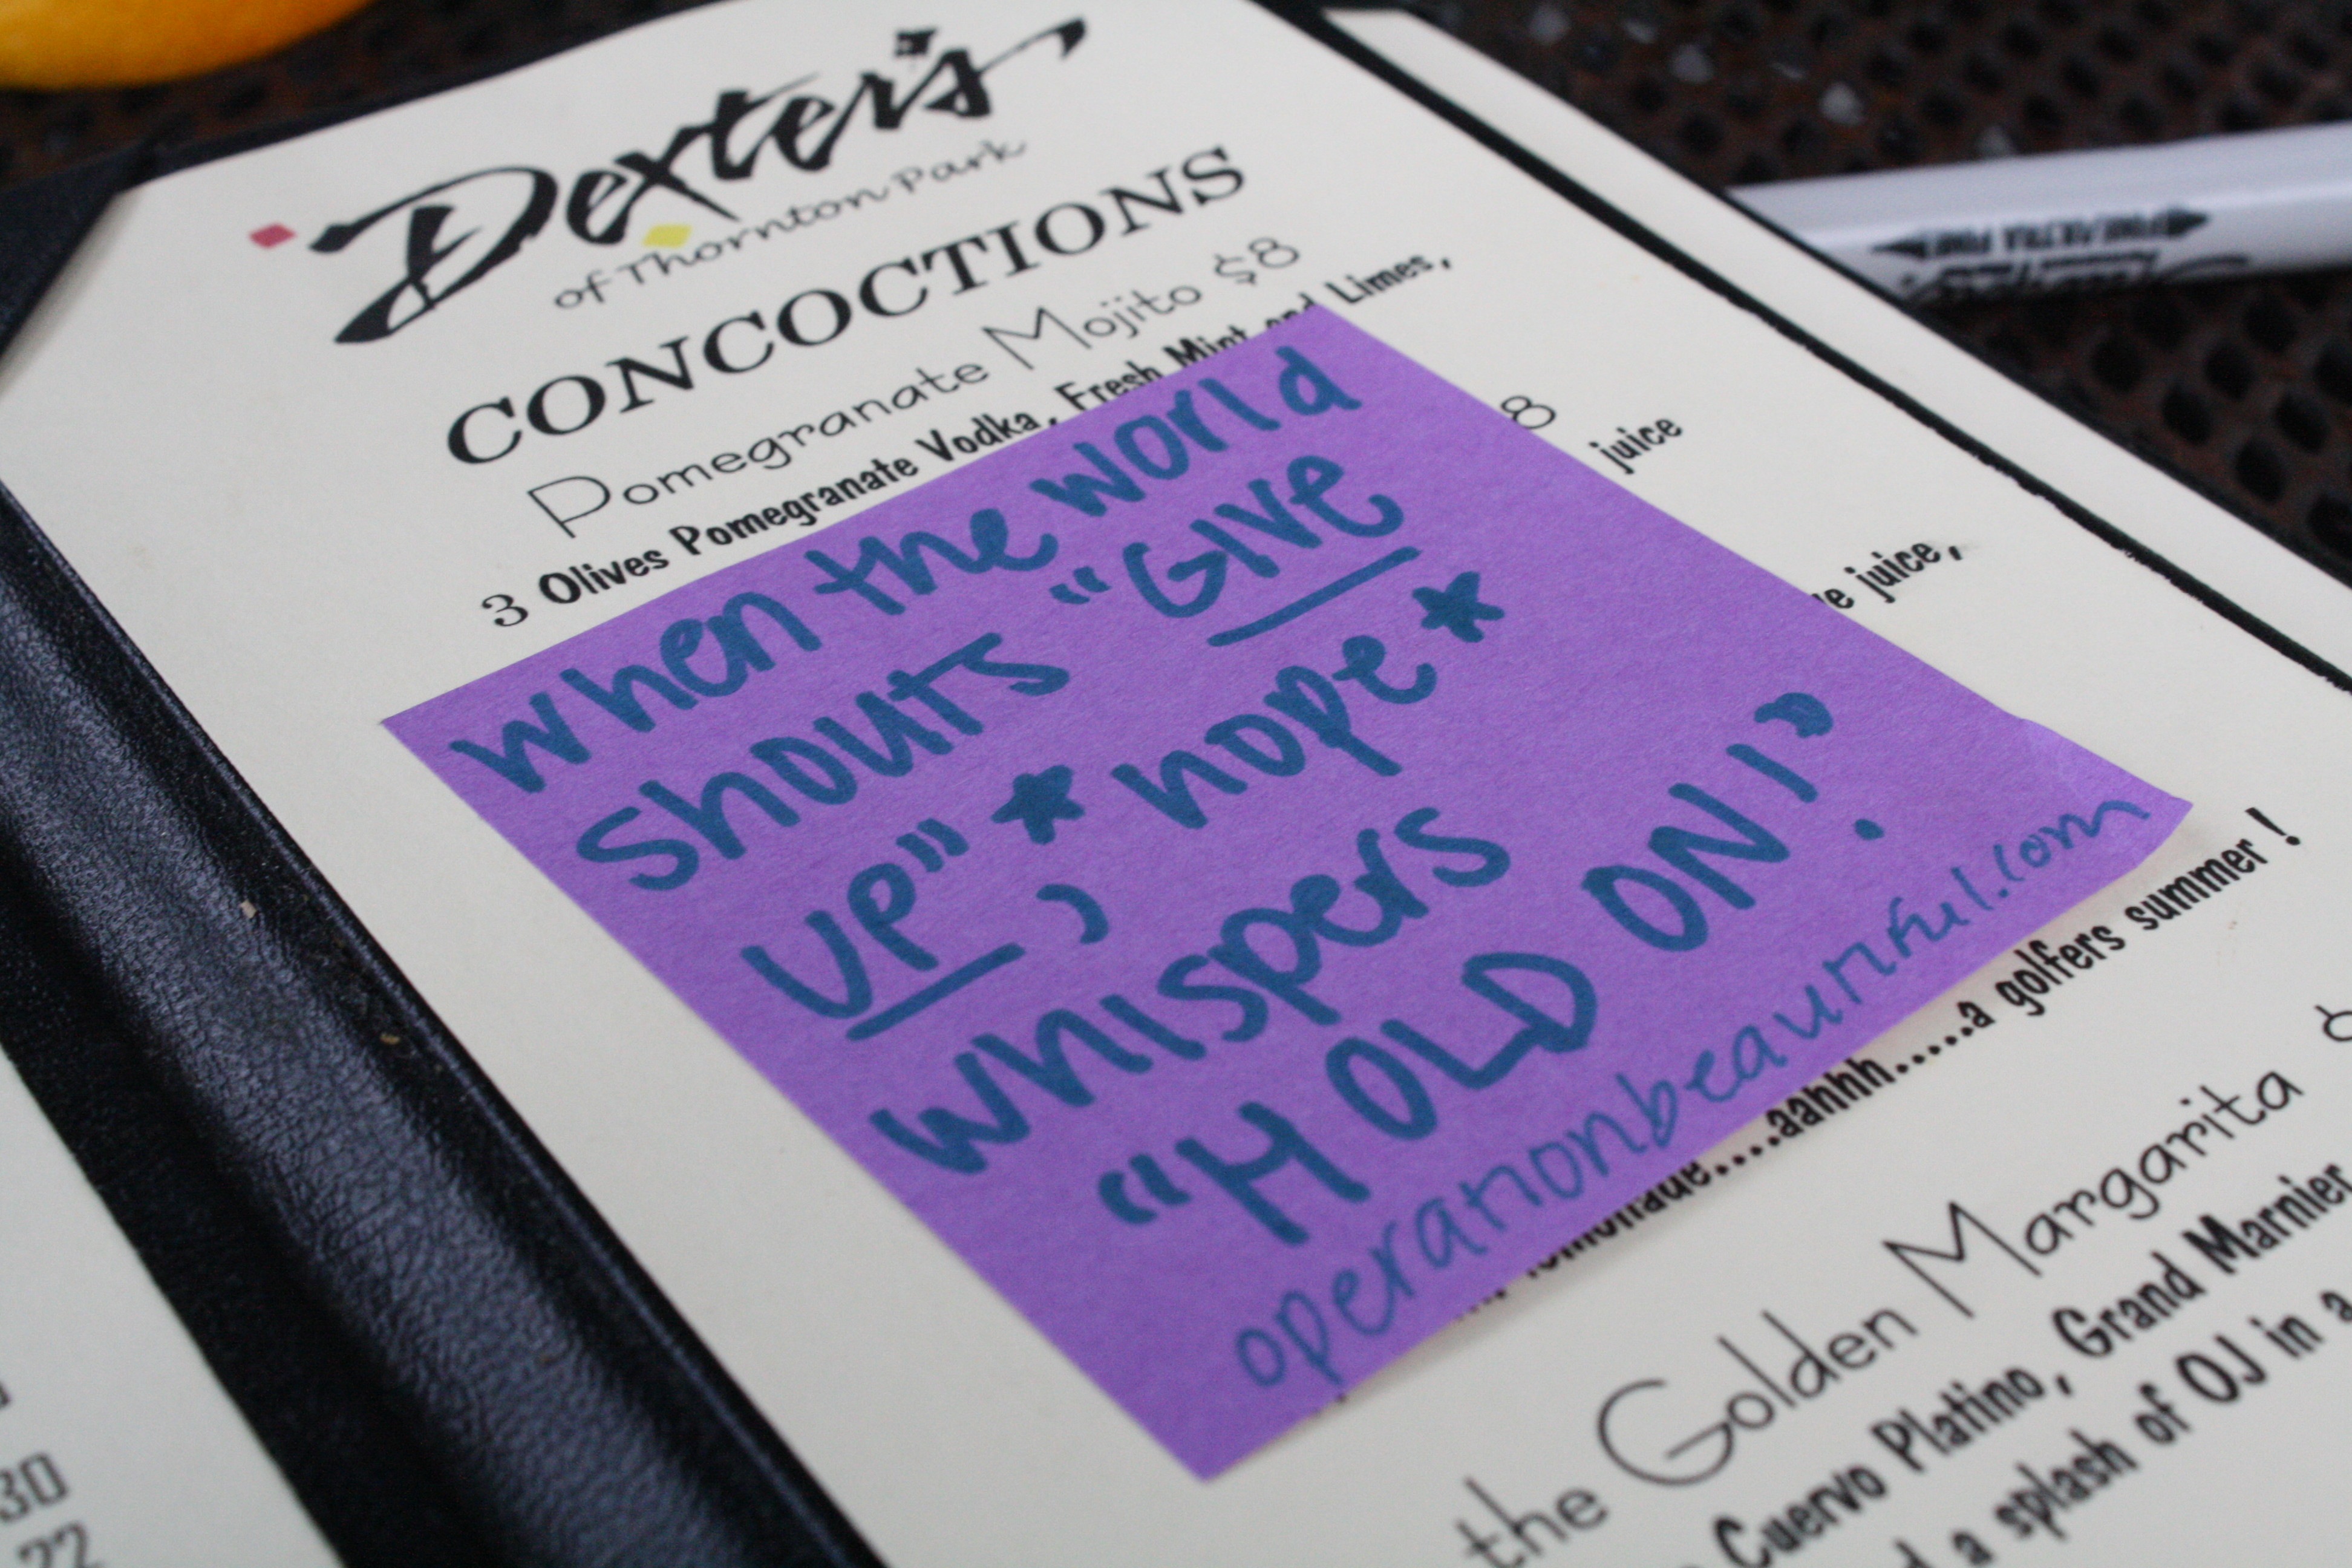 Dexter's
of Thornton Park
CONCOCTIONS
Pomegranate Mojito $8
3 Olives Pomegranate Vodka, Fresh Mint and Limes,
8
juice
juice,
when the world
shouts "GIVE
UP", ★ hope ★
whispers
"HOLD ON!"
operationbeautiful.com
lemonade....aahhh.....a golfers summer !
the Golden Margarita
Cuervo Platino, Grand Marnier
a splash of OJ in a
30
22